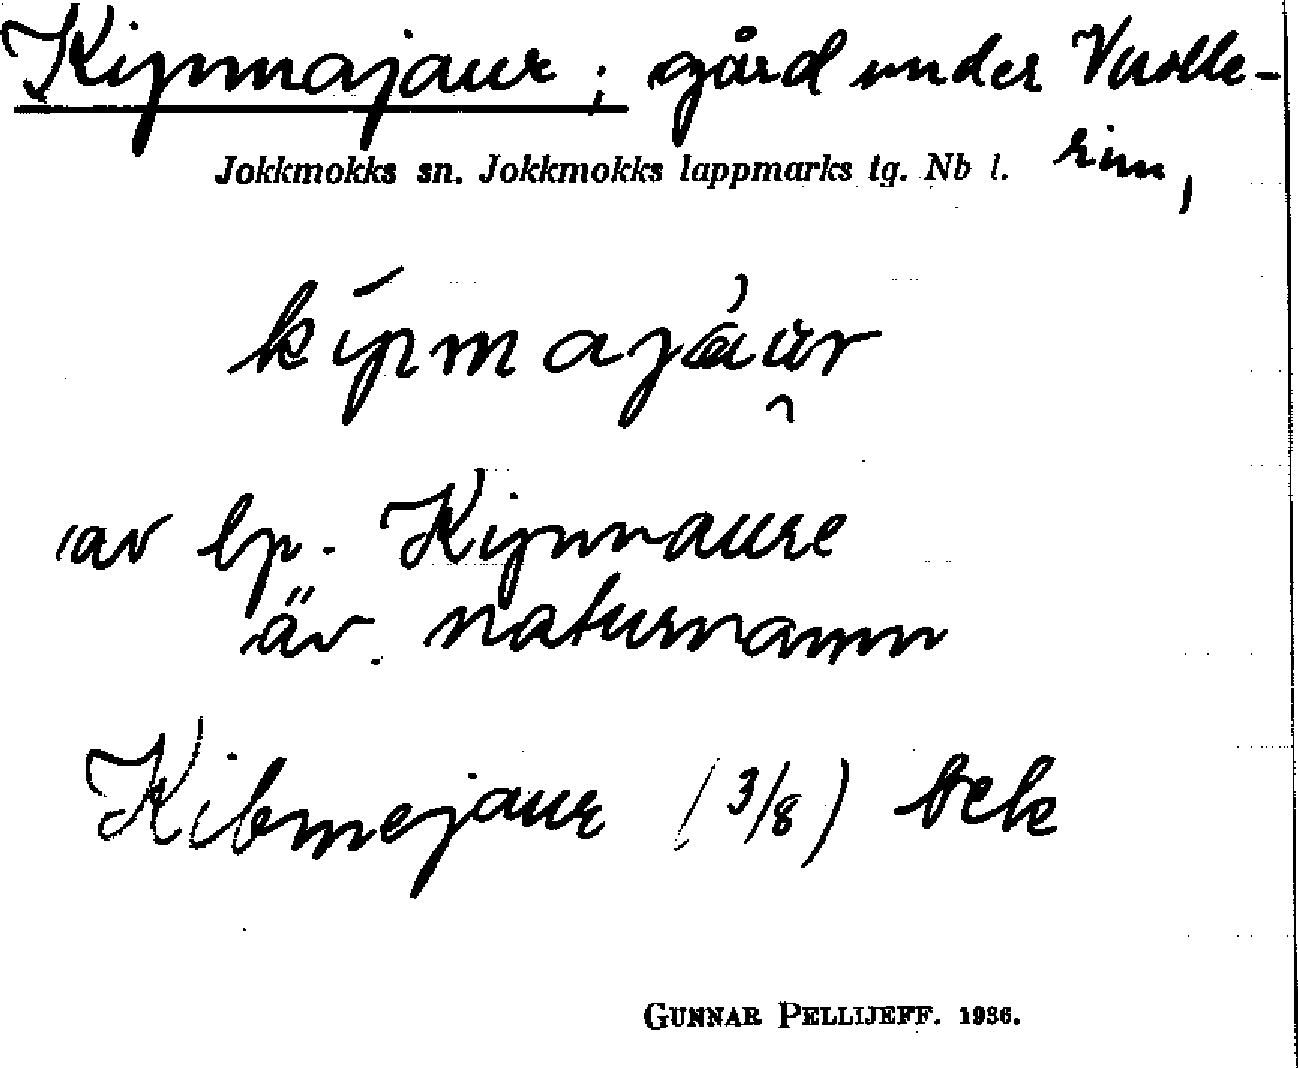 Kipmajaur; gård under Vuolle-
rim,
Jokkmokks sn. Jokkmokks lappmarks tg. Nb l.
kipmajáur
av lp. Kipmaure
äv. naturnamn
Kibmejaur (3/8) bek
GUNNAR PELLIJEFF. 1936.